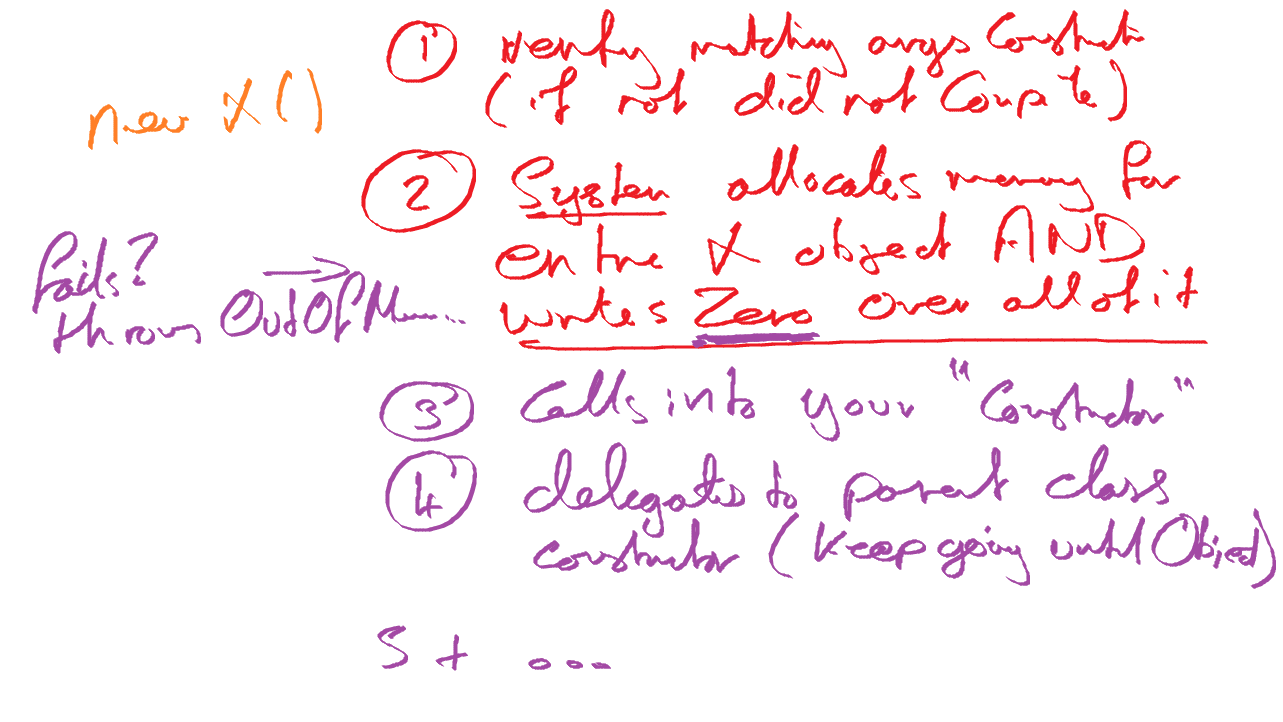 new X()
① verify matching args Constructor
(if not did not Compile)
② System allocates memory for
entire X object AND
writes Zero over all of it
fails?
throws OutOfM.....
③ Calls into your "Constructor"
④ delegates to parent class
constructor (keep going until Object)
5 + ...